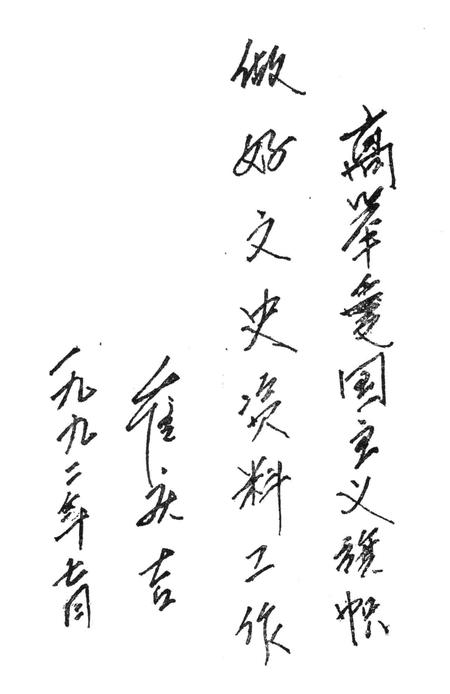 高举爱国主义旗帜
做好文史资料工作
崔庆吉
一九九二年七月